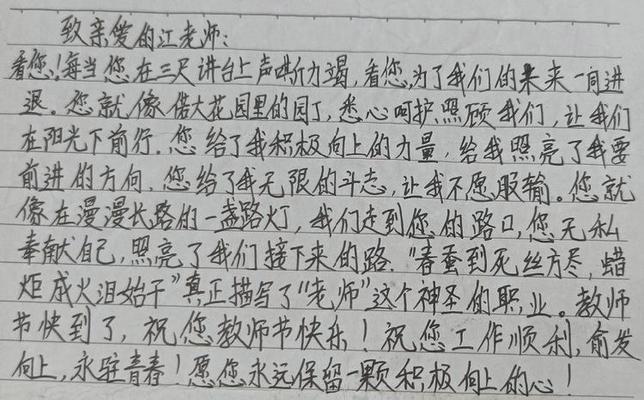 致亲爱的江老师：
看您！每当您在三尺讲台上声嘶力竭，看您，为了我们的未来一同进
退。您就像偌大花园里的园丁，悉心呵护照顾我们，让我们
在阳光下前行。您给了我积极向上的力量，给我照亮了我要
前进的方向。您给了我无限的斗志，让我不愿服输。您就
像在漫漫长路的一盏路灯，我们走到您的路口，您无私
奉献自己，照亮了我们接下来的路。“春蚕到死丝方尽，蜡
炬成火泪始干”真正描写了“老师”这个神圣的职业。教师
节快到了，祝您教师节快乐！祝您工作顺利，愈发
向上，永驻青春！愿您永远保留一颗积极向上的心！